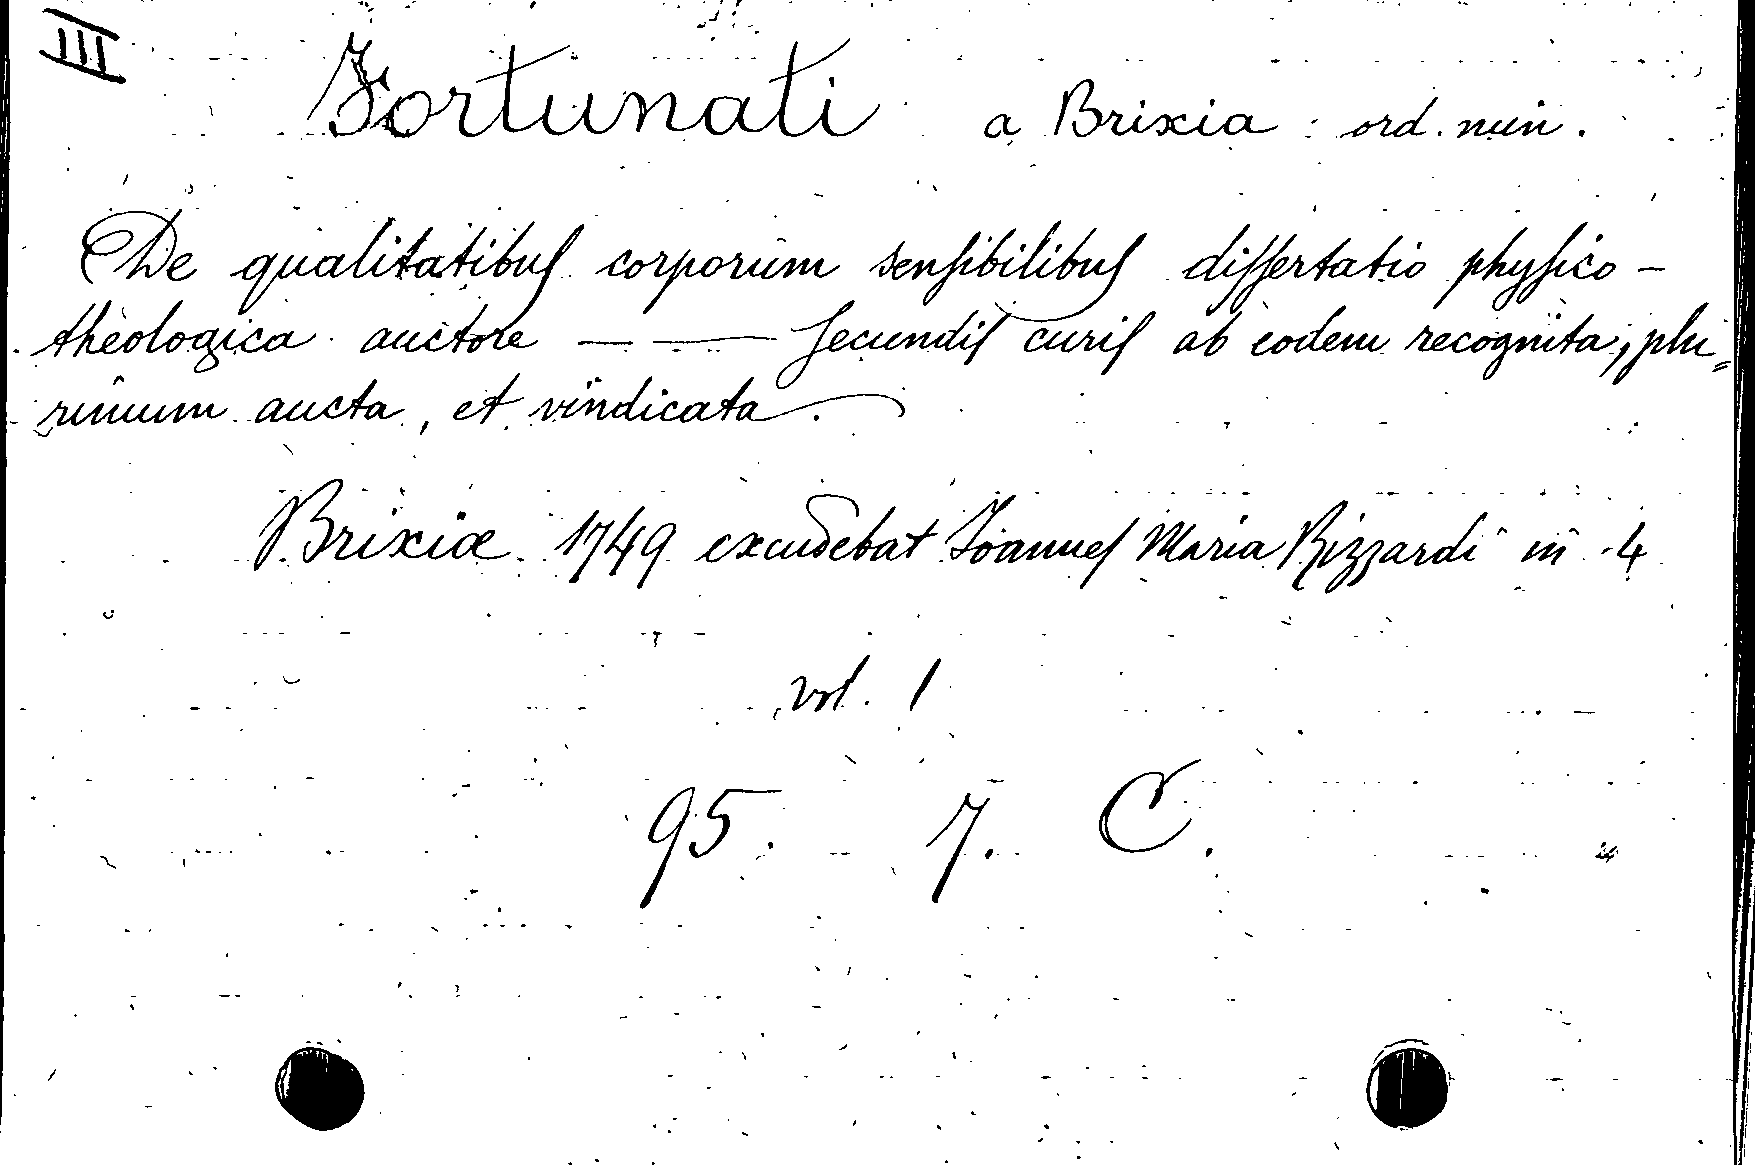 III
Fortunati a Brixia ord. min.
De qualitatibuſ corporum senſibilibuſ diſſertatio phyſico-
theologica auctore — — ſecundiſ curiſ ab eodem recognita, plu=
rimum aucta, et vindicata.
Brixiæ 1749 excudebat Joanneſ Maria Rizzardi in 4
vol. 1
95. 7. C.